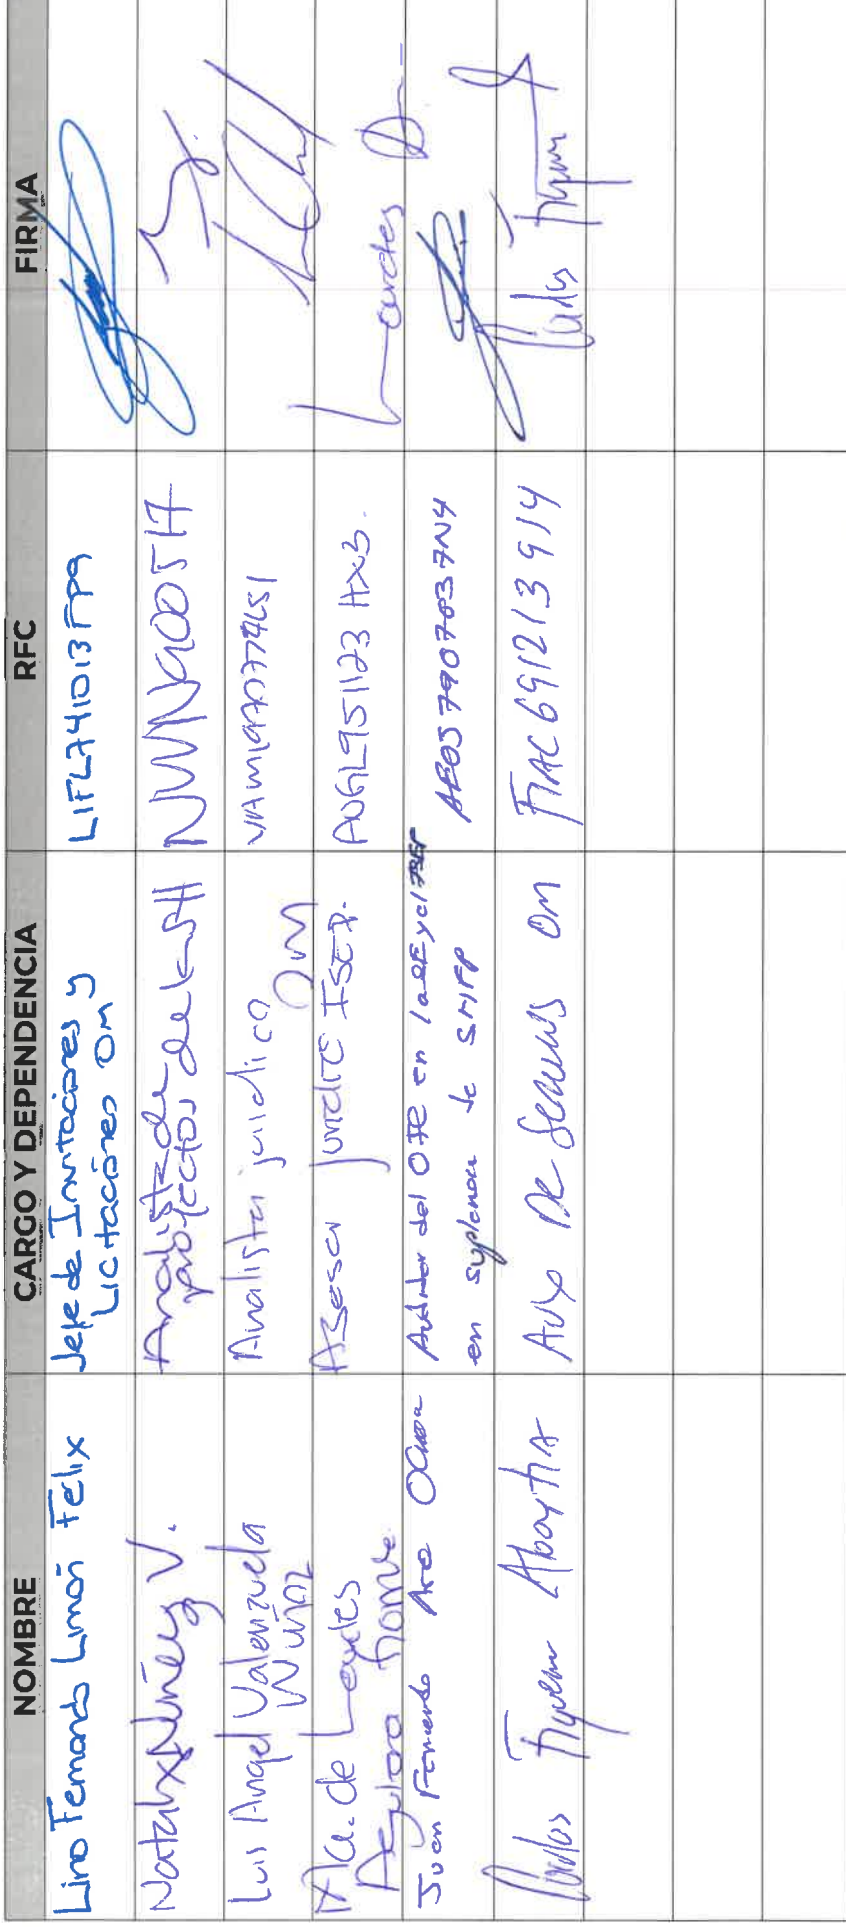 NOMBRE CARGO Y DEPENDENCIA RFC FIRMA
Lino Fernando Limón Félix
Jefe de Invitaciones y
Licitaciones OM
LIFL741013FP9
Natalia Núñez V.
Analista de
proyectos de la SH
NUVN900517
Luis Angel Valenzuela
Muñoz
Analista jurídico OM
Ma. de Lourdes
Aguilara
Asesor jurídico ISEP.
AUGL951123HX3.
Lourdes
Juan Fernando Arce Ochoa
Auditor del OFE en la SE y el ISEP
en suplencia de SHFP
AEOJ7907037N4
Carlos Figueroa Aboytia
Aux De Seguros OM
FIAC691213914
Carlos Figueroa